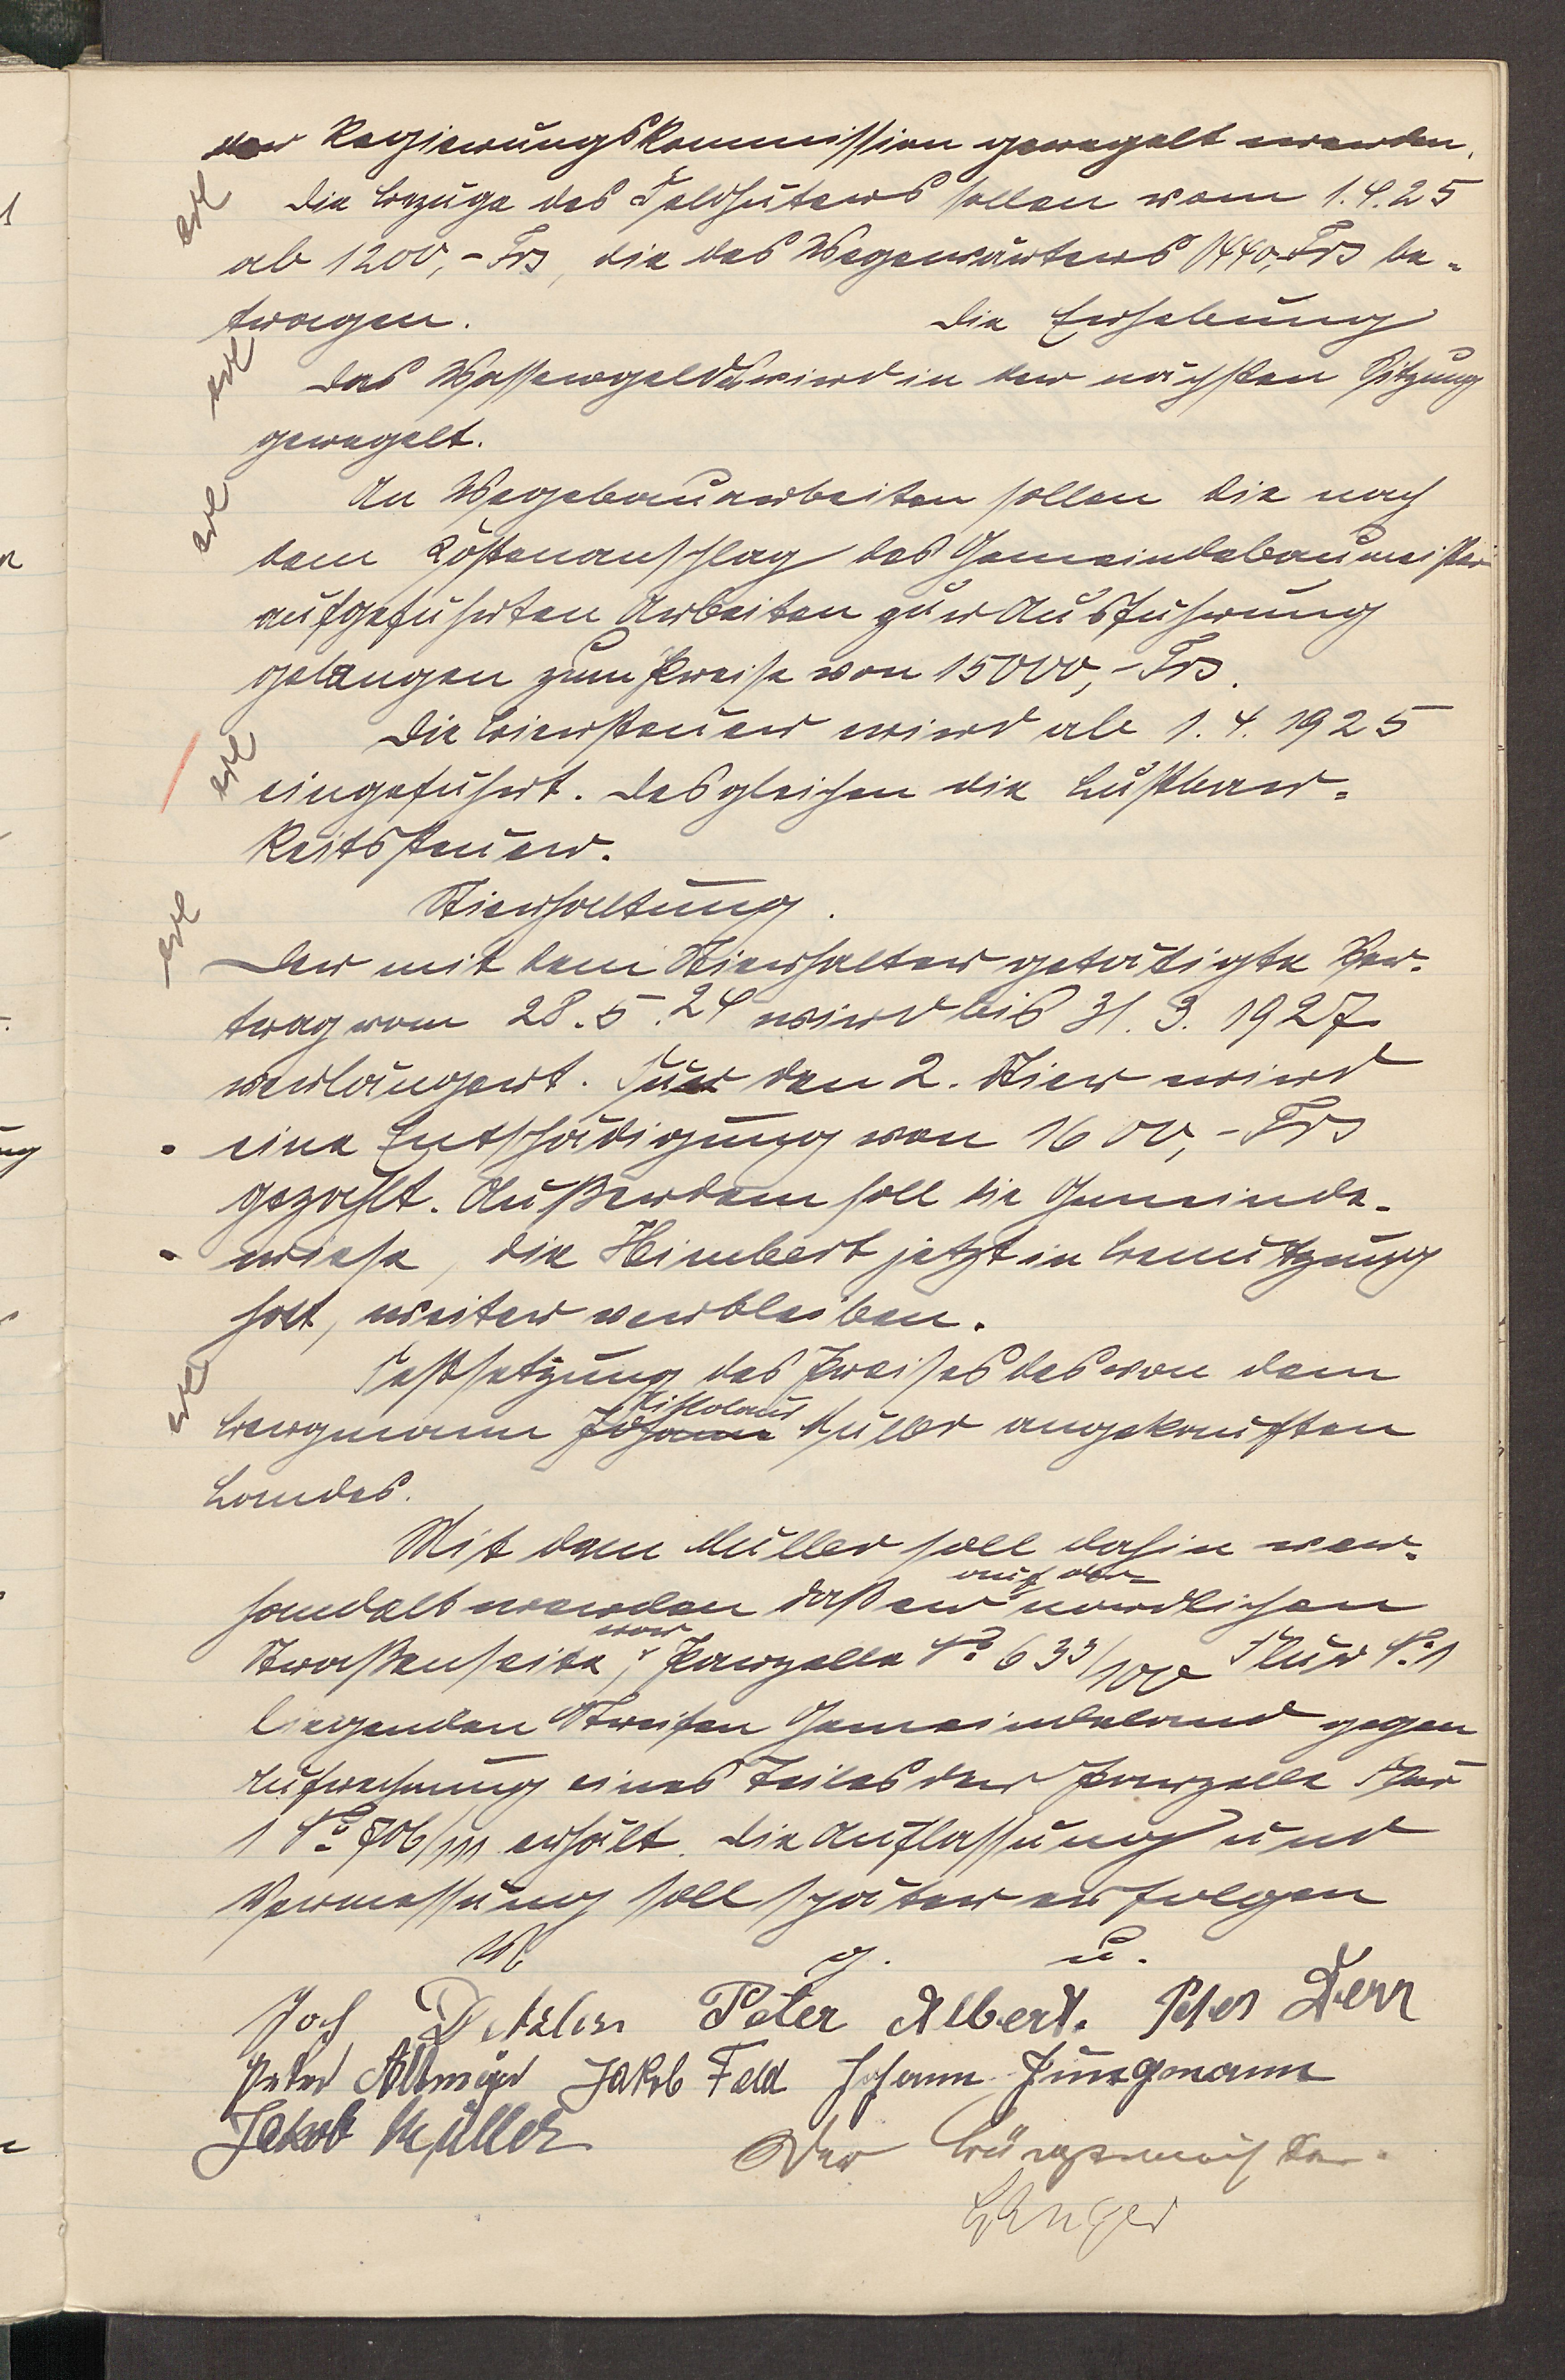 der Regierungskommission geregelt werden.
erl
Die Bezüge des Feldhüters sollen vom 1.4.25
ab 1200,- Frs, die des Wegewärters 1440,- Frs be-
tragen. Die Erhebung
erl
Das Wassergeldes wird in der nächsten Sitzung
geregelt.
erl
An Wegebauarbeiten sollen die nach
dem Kostenanschlag des Gemeindebaumeister
aufgeführten Arbeiten zur Ausführung
gelangen zum Preise von 15000,- Frs.
erl
Die Biersteuer wird ab 1.4.1925
eingeführt. Desgleichen die Lustbar-
keitssteuer.
Stierhaltung.
erl
Der mit dem Stierhalter getätigte Ver-
trag vom 28.5.24 wird bis 31.3.1927
verlängert. Für den 2. Stier wird
eine Entschädigung von 1600,- Frs
gezahlt. Außerdem soll die Gemeinde-
wiese, die Heimbert jetzt in Benutzung
hat, weiter verbleiben.
erl
Festsetzung des Preises des von dem
Nikolaus
Bergmann Johann Müller angekauften
Landes.
Mit dem Müller soll dahin ver-
auf der
handelt werden daß er nördlichen
vor
Straßenseite, Parzelle No 633/100 Flur No 1
liegenden Streifen Gemeindeland gegen
Aufrechnung eines Teiles der Parzelle Flur
1 No 706/111 erhält. Die Auflassung und
Vermessung soll später erfolgen
V. g. u.
Joh Peter Albert. Peter Derr
Peter Altmeyer Jakob Feld Johann Jungmann
Jakob Müller Der Bürgermeister.